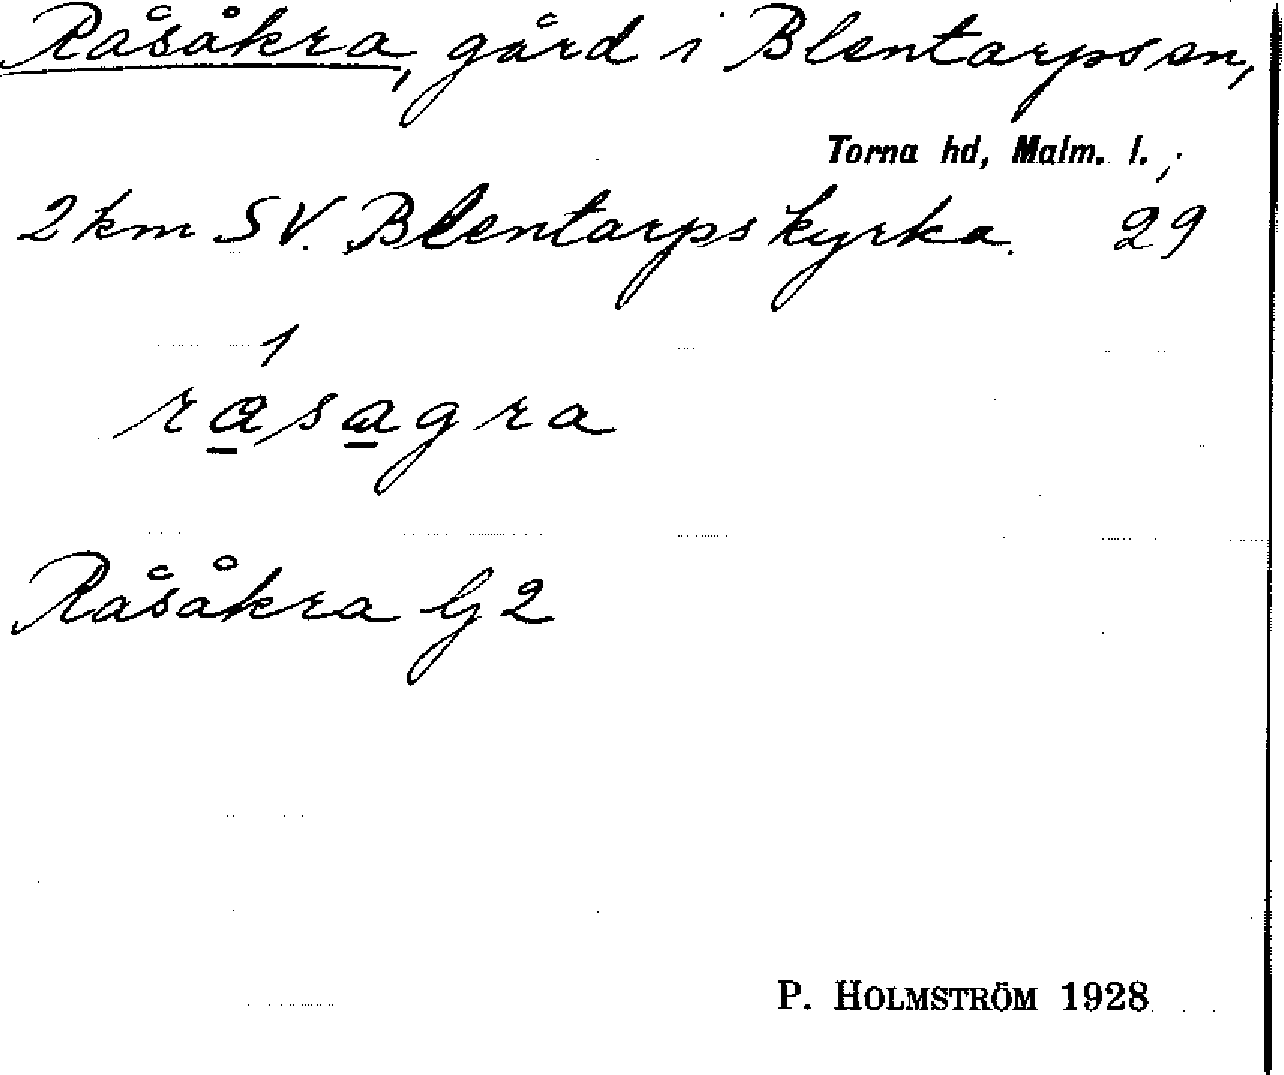 Råsåkra, gård i Blentarps sn,
Torna hd, Malm. l.;
2 km SV. Blentarps kyrka. 29
1
råsagra
Råsåkra G 2
P. HOLMSTRÖM 1928